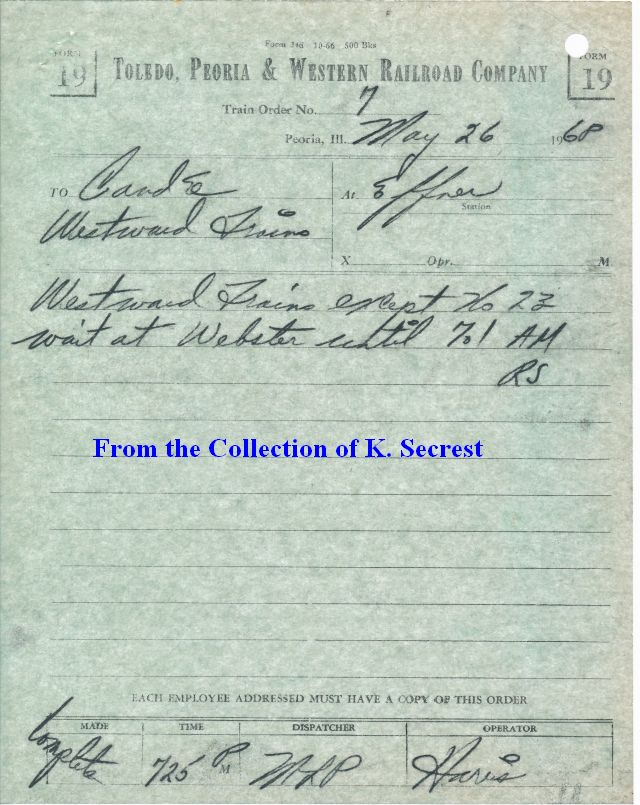 Form 31d 10-66 500 Bks
FORM 19
TOLEDO, PEORIA & WESTERN RAILROAD COMPANY
FORM 19
Train Order No. 7
Peoria, Ill. May 26 1968
TO C and E At Effner
Station
Westward Trains
X Opr. M
Westward Trains except No 23
wait at Webster until 701 AM
RS
From the Collection of K. Secrest
EACH EMPLOYEE ADDRESSED MUST HAVE A COPY OF THIS ORDER
MADE TIME DISPATCHER OPERATOR
Complete 725 P M Haris